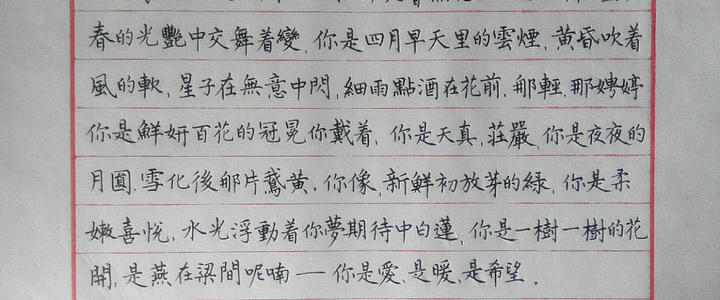 春的光艷中交舞着變，你是四月早天里的雲煙，黄昏吹着
風的軟，星子在無意中閃，細雨點洒在花前，那輕，那娉婷
你是鮮妍百花的冠冕你戴着，你是天真，莊嚴，你是夜夜的
月圓，雪化後那片鵝黄，你像，新鮮初放芽的緑，你是柔
嫩喜悦，水光浮動着你夢期待中白蓮，你是一樹一樹的花
開，是燕在梁間呢喃——你是愛，是暖，是希望。